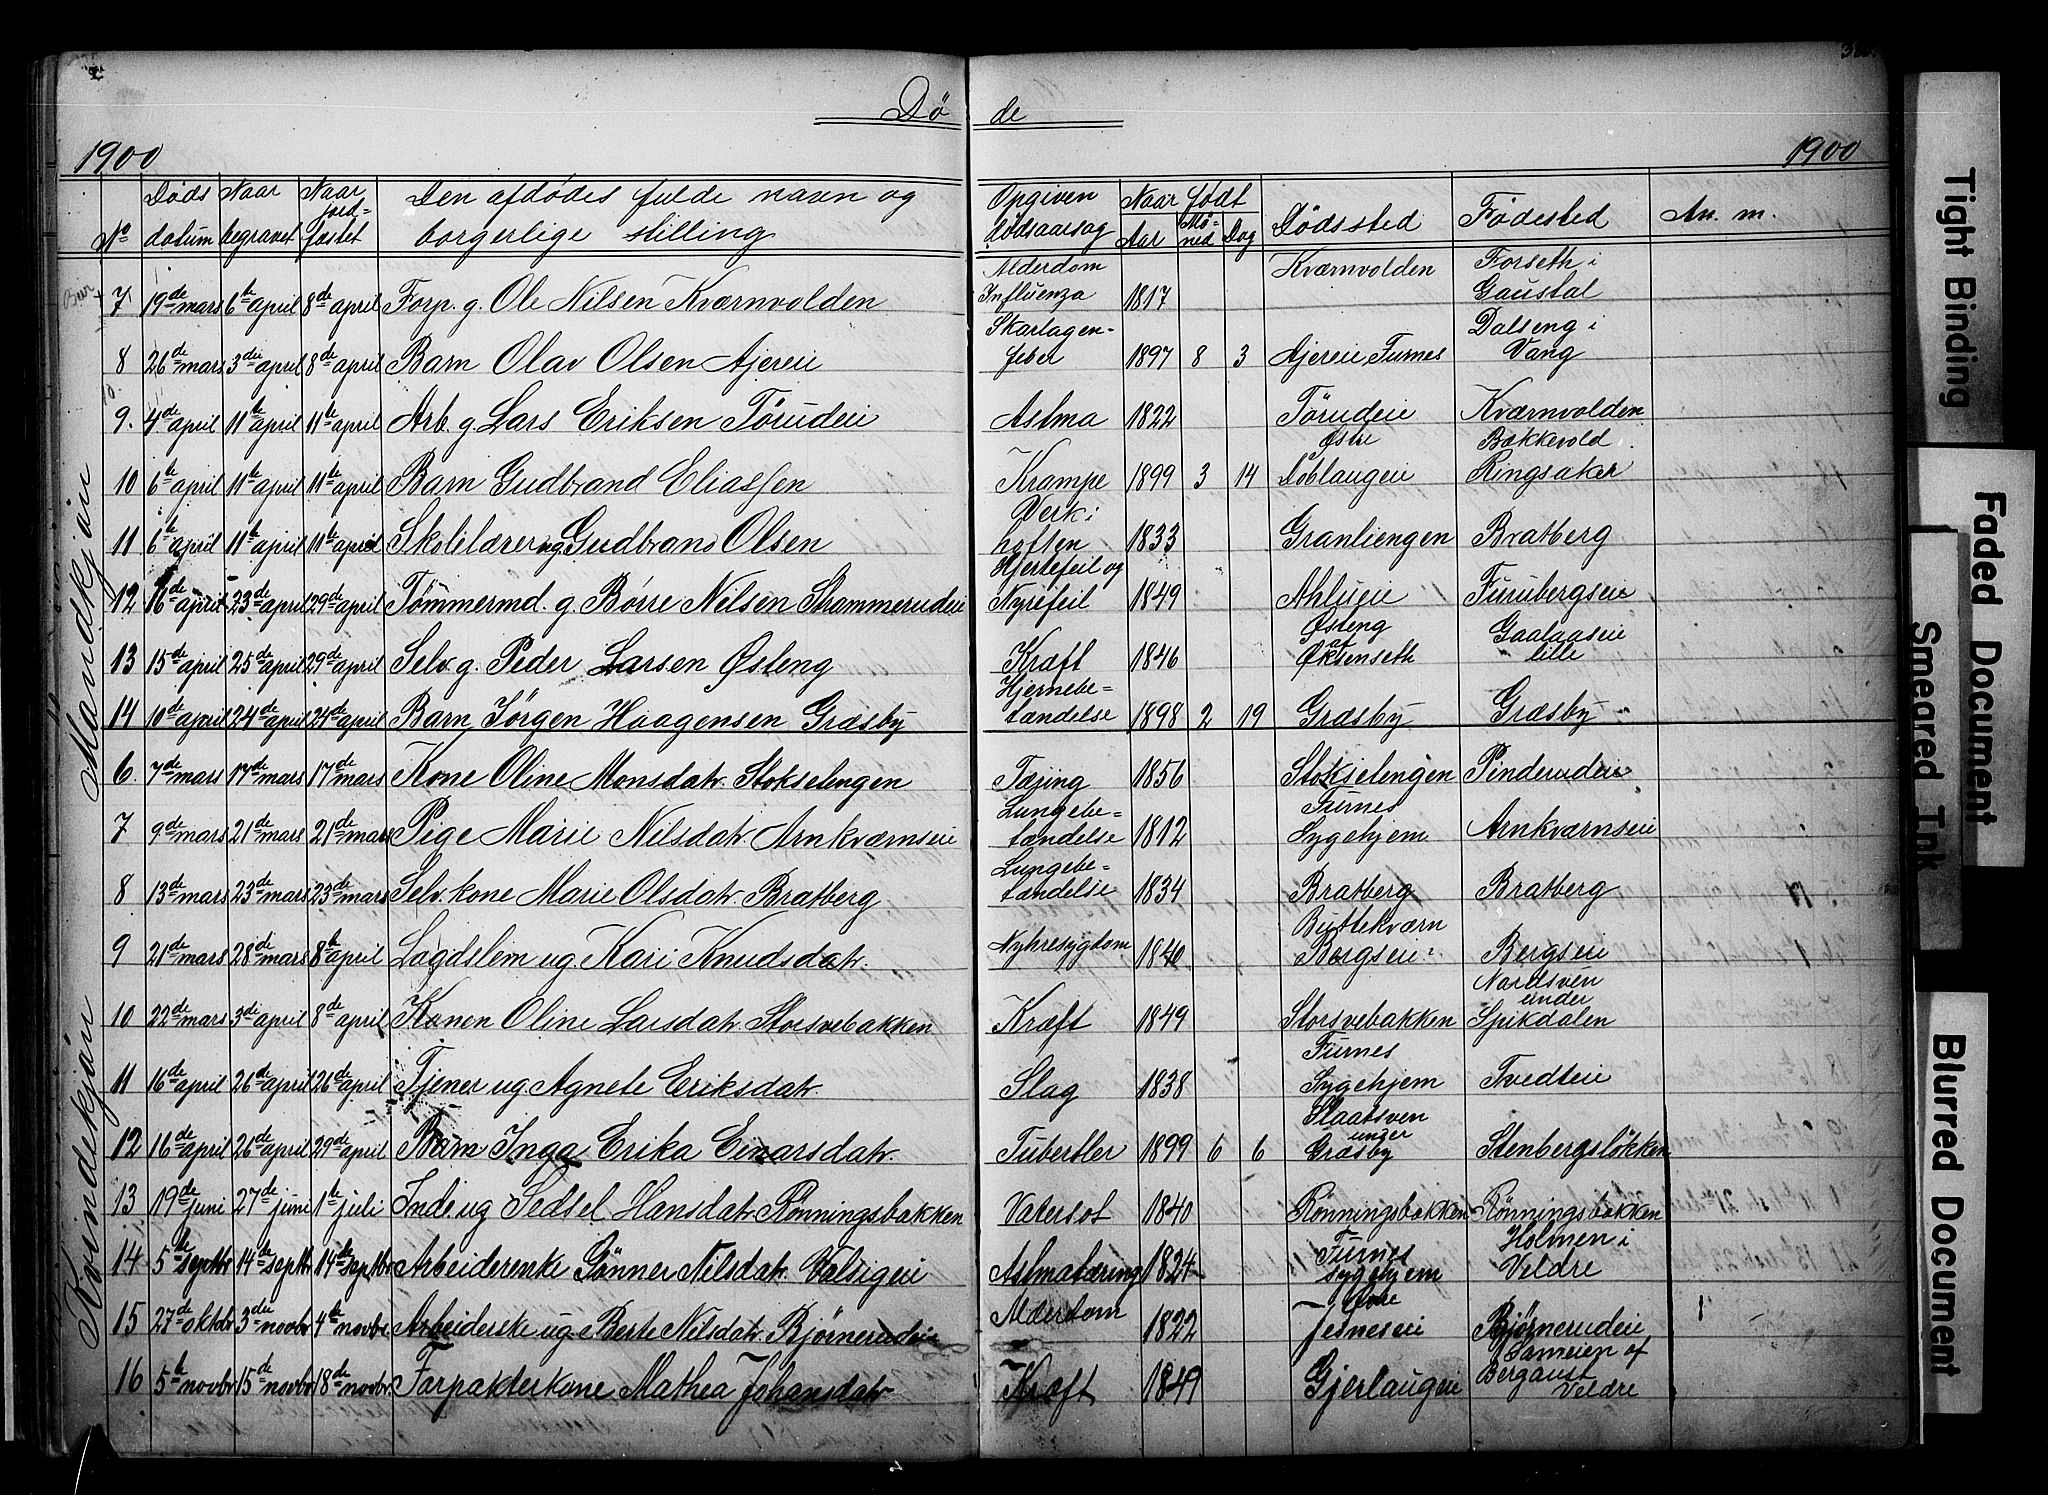 Dö de
1900 1900
No Døds datum Naar begravet Naar jordfæstet Den afdödes fulde navn og borgerlige stilling Opgiven dödsaarsag Naar født Aar Maaned Dag Dödssted Födested An. m.
Mandkjön
7 19de mars 6te april 8de april Forp. g. Ole Nilsen Kværnvolden Alderdom Influenza 1817 Kværnvolden Forseth i Gausdal
8 26de mars 3die april 8de april Barn Olav Olsen Ajereie Skarlagenfeber 1897 8 3 Ajereie Furnes Dalseng i Vang
9. 4de april 11te april 11te april Arb. g Lars Eriksen Törudeie Astma 1822 Törudeie Kværnvolden
10 6te april 11te april 11te april Barn Gudbrand Eliassen Krampe 1899 3 14 Østre Döblaugeie Bækkevold Ringsaker
11 6te april 11te april 11te april Skolelærer ug Gudbrand Olsen Verk i hoften 1833 Granliengen Bratberg
12 16de april 23de april 29de april Tömmermd. g. Börre Nilsen Skammerudeie Hjertefeil og Nyrefeil 1849 Ahlueie Furubergseie
13 15de april 25de april 29de april Selv. g. Peder Larsen Østeng Kræft 1846 Østeng at Øksenseth Gaalaaseie lille
14 10de april 24de april 25de april Barn Jörgen Haagensen Græsby Hjernebetændelse 1898 2 19 Græsby Græsby
Kvindekjön
6. 7de mars 17de mars 17de mars Kone Oline Monsdatr. Stokselengen Tæring 1856 Stokselengen Pinderudeie
7 9de mars 21de mars 21de mars Pige Marie Nilsdatr. Arnkværnseie Lungebetændelse 1812 Furnes Sygehjem Arnkværnseie
8 13de mars 23de mars 23de mars Selv. kone Marie Olsdatr. Bratberg Lungebetændelse 1834 Bratberg Bratberg
9 21de mars 28de mars 8de april Lægdslem ug Kari Knudsdatr. Nyhresygdom 1840 Buttekværn Bergseie Bergseie
10 22de mars 3die april 8de april Konen Oline Larsdatr. Storsvebakken Kræft 1849 Storsvebakken Nordsven under Spikdalen
11 16de april 26de april 26de april Tjener ug Agnete Eriksdatr. Slag 1838 Furnes Sygehjem Tvedteie
12 16de april 26de april 29de april Barn Inga Erika Einarsdatr. Tuberkler 1899 6 6 Slaatsven under Græsby Stenbergslökken
13 19de juni 27de juni 1te juli Inde ug Sedsel Hansdatr. Rönningsbakken Vatersot 1840 Rönningsbakken Rönningsbakken
14 5te septbr 14te septbr 14te septbr Arbeiderenke Gönner Nilsdatr. Valsigeie Astmatæring 1824 Furnes sygehjem Holmen i Veldre
15 27de oktbr 3die novbr 4te novbr Arbeiderske ug. Berte Nilsdatr. Björnerudeie Alderdom 1822 Jesneseie Björnerudeie
16 5te novbr 15de novbr 18de novbr Forpakterkone Mathea Johansdatr Kræft 1849 Gjerlaugeie Sameien af Bergaust Veldre
Tight Binding
Faded Document
Smeared Ink
Blurred Document